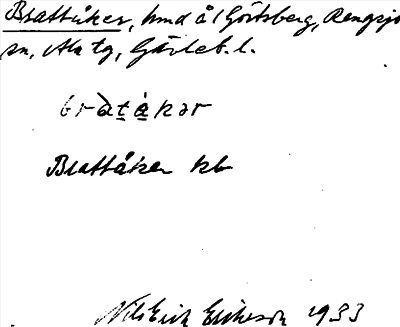 Brattåker, hmd å Görtsberg, Rengsjö
sn, Ala tg, Gävleb. l.
bràtåkər
Brattåker kb
Nils Erik Eriksson 1933